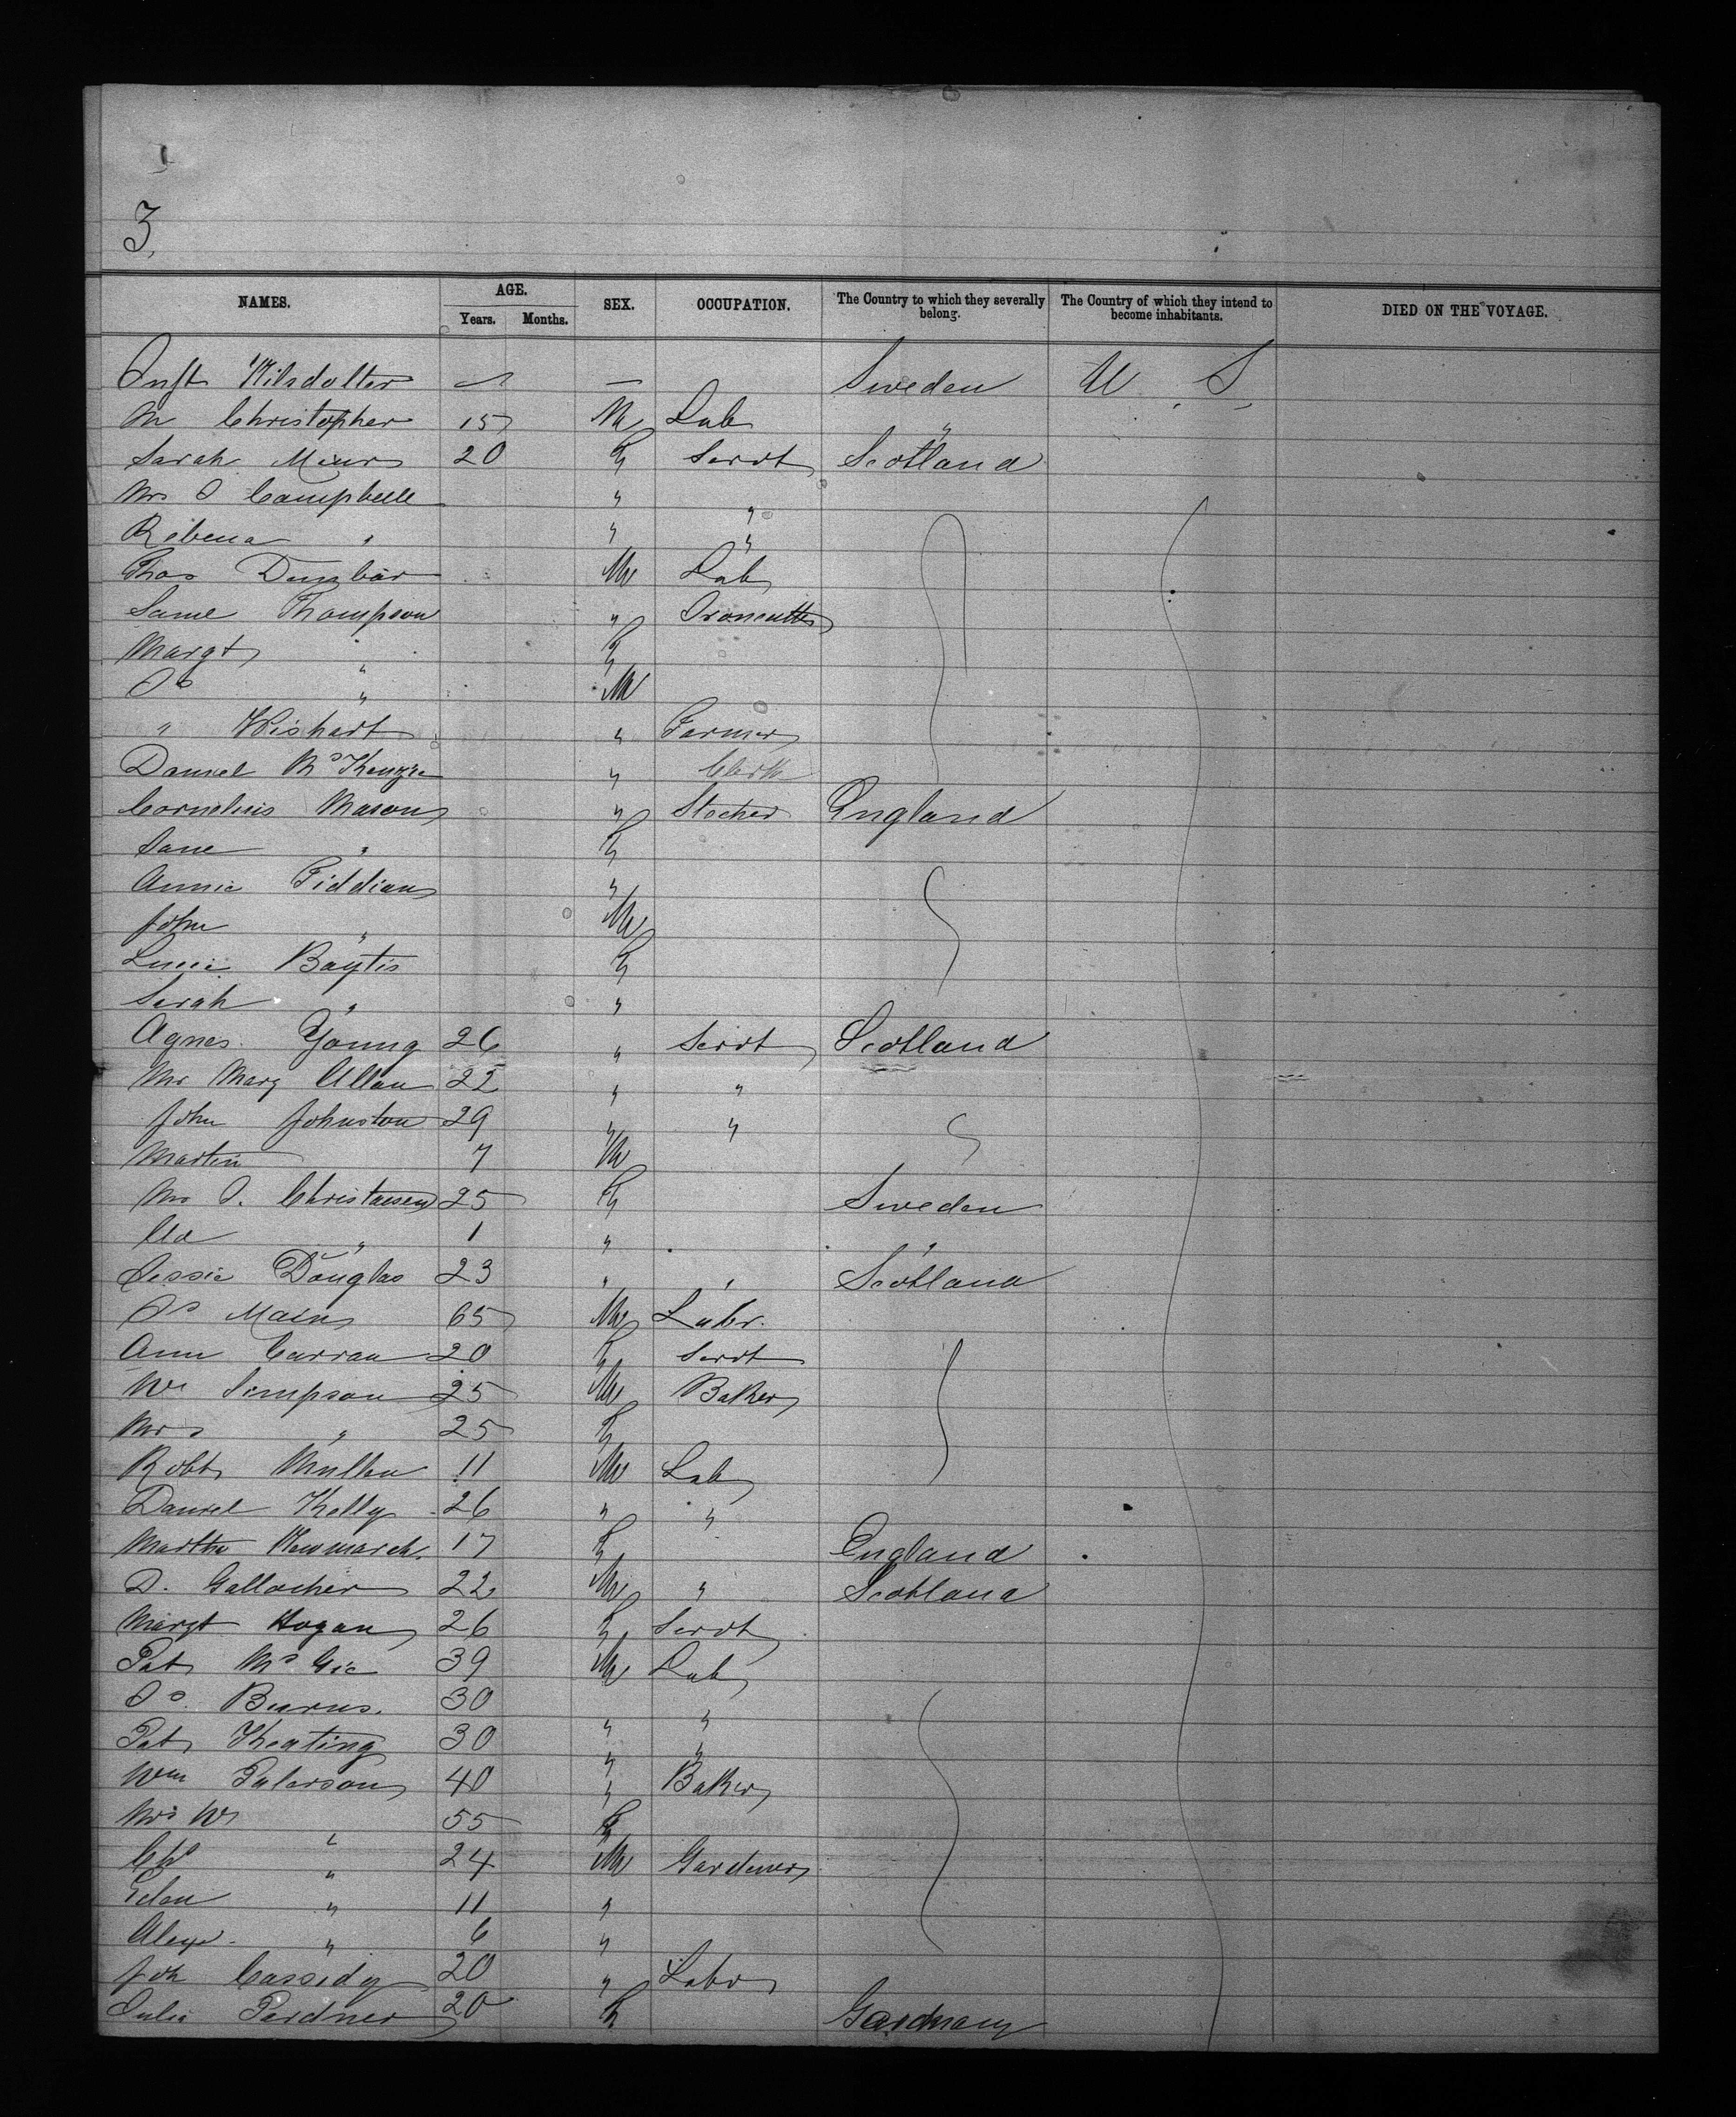 3.
NAMES. AGE. Years. Months. SEX. OCCUPATION. The Country to which they severally belong. The Country of which they intend to become inhabitants. DIED ON THE VOYAGE.
— — Sweden U S
M Christopher 15 M Lab "
Sarah 20 F Servt Scotland
Mrs J Campbell " "
" " "
Thos Dunbar M Lab
Thompson "
Margt " F
Js " M
" Wishart " Farmer
Daniel McKenzie " Clerk
Cornelius Mason " Stocker England
Jane " F
Annie Fiddian "
John " M
F
Sarah " "
Agnes Young 26 " Servt Scotland
Mrs Mary Allan 22 " "
John Johnston 29 " "
Martin 7 M
Mrs J. 25 F Sweden
" 1 " "
Jessie Douglas 23 " " Scotland
Js Main 65 M Labr.
Ann Curran 20 F Servt
Wm Simpson 25 M Baker
Mrs " 25 F
Robt Mullen 11 M Lab
Daniel Kelly 26 " "
Martha Newmarch. 17 F England
D. Gallocher 22 M " Scotland
Margt Hogan 26 F Servt
Pat McGie 39 M Lab
Js Burns. 30 " "
Pat Keating 30 " "
Wm Paterson 40 " Baker
Mrs Wm " 55 F
Chs " 24 M Gardener
" 11 "
Alexr. " 6 "
Joh Cassidy 20 " Labr
Julia Perdner 20 F Gardmany